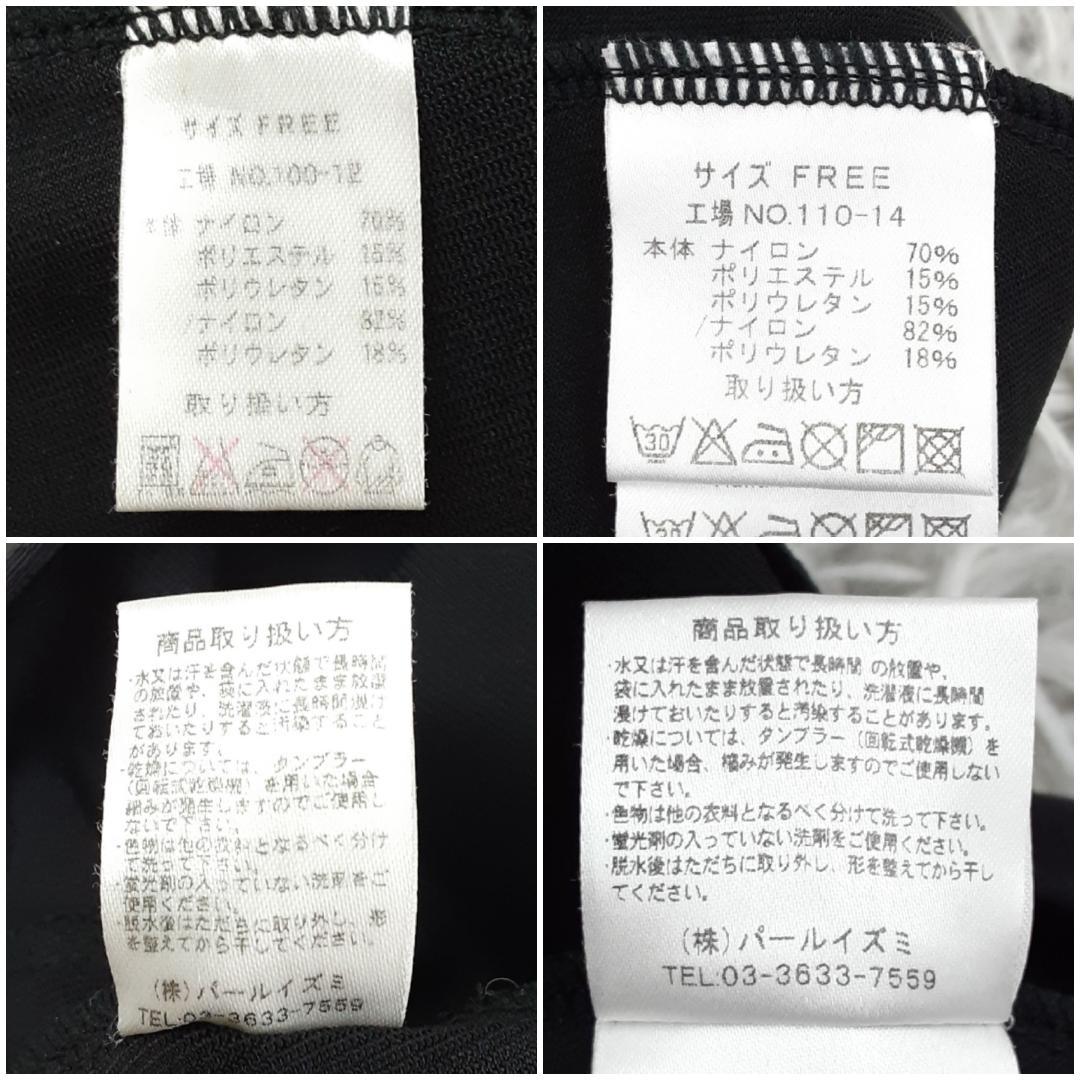 サイズ FREE
工場 NO.100-12
本体 ナイロン 70%
ポリエステル 15%
ポリウレタン 15%
/ナイロン 82%
ポリウレタン 18%
取り扱い方
サイズ FREE
工場 NO.110-14
本体 ナイロン 70%
ポリエステル 15%
ポリウレタン 15%
/ナイロン 82%
ポリウレタン 18%
取り扱い方
30
商品取り扱い方
・水又は汗を含んだ状態で長時間
の放置や、袋に入れたまま放置
されたり、洗濯液に長時間浸け
ておいたりすると汚染すること
があります。
・乾燥については、タンブラー
(回転式乾燥機) を用いた場合
縮みが発生しますのでご使用し
ないで下さい。
・色物は他の衣料となるべく分け
て洗って下さい。
・蛍光剤の入っていない洗剤をご
使用ください。
・脱水後はただちに取り外し、形
を整えてから干してください。
(株)パールイズミ
TEL:03-3633-7559
商品取り扱い方
・水又は汗を含んだ状態で長時間 の放置や、
袋に入れたまま放置されたり、洗濯液に長時間
浸けておいたりすると汚染することがあります。
・乾燥については、タンブラー (回転式乾燥機) を
用いた場合、縮みが発生しますのでご使用しない
で下さい。
・色物は他の衣料となるべく分けて洗って下さい。
・蛍光剤の入っていない洗剤をご使用ください。
・脱水後はただちに取り外し、形を整えてから干し
てください。
(株)パールイズミ
TEL:03-3633-7559